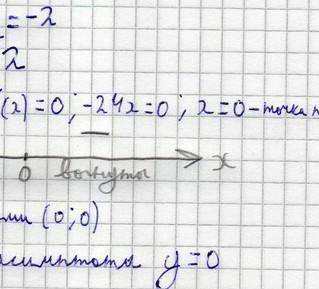 = -2
2
(x) = 0 ; -24x = 0 ; x = 0 - точка
0 вогнута x
(0; 0)
асимптоты y = 0